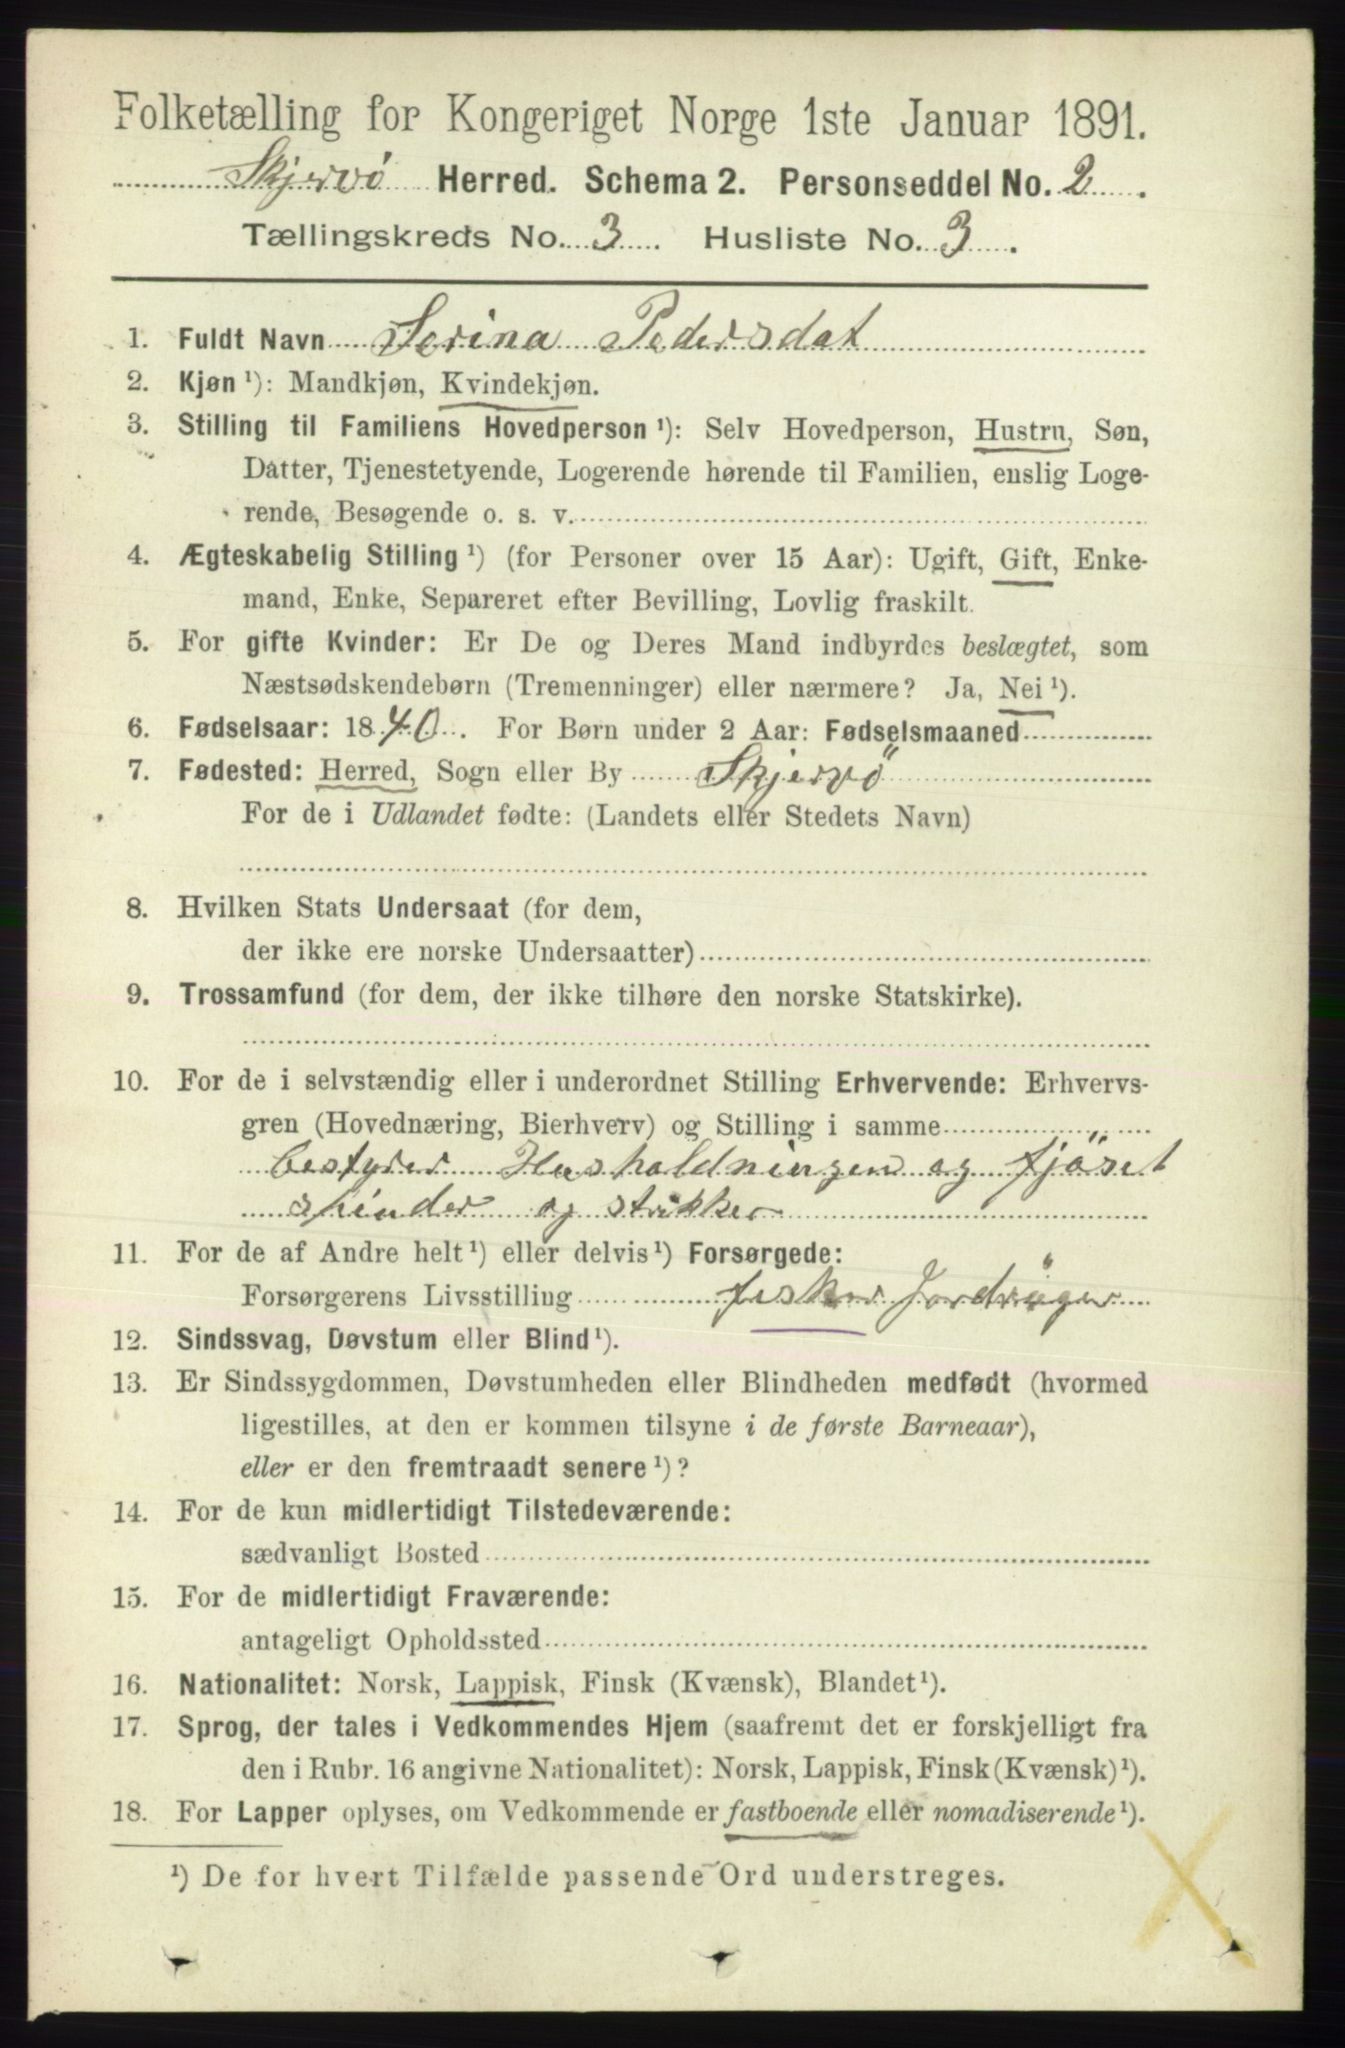 Folketælling for Kongeriget Norge 1ste Januar 1891.
Skjervö Herred. Schema 2. Personseddel No. 2.
Tællingskreds No. 3. Husliste No. 3.
1. Fuldt Navn Serina Pedersdat
2. Kjøn ¹): Mandkjøn, Kvindekjøn.
3. Stilling til Familiens Hovedperson ¹): Selv Hovedperson, Hustru, Søn,
Datter, Tjenestetyende, Logerende hørende til Familien, enslig Loge-
rende, Besøgende o. s. v.
4. Ægteskabelig Stilling ¹) (for Personer over 15 Aar): Ugift, Gift, Enke-
mand, Enke, Separeret efter Bevilling, Lovlig fraskilt.
5. For gifte Kvinder: Er De og Deres Mand indbyrdes beslægtet, som
Næstsødskendebørn (Tremenninger) eller nærmere? Ja, Nei ¹).
6. Fødselsaar: 1840. For Børn under 2 Aar: Fødselsmaaned
7. Fødested: Herred, Sogn eller By Skjervö
For de i Udlandet fødte: (Landets eller Stedets Navn)
8. Hvilken Stats Undersaat (for dem,
der ikke ere norske Undersaatter)
9. Trossamfund (for dem, der ikke tilhøre den norske Statskirke).
10. For de i selvstændig eller i underordnet Stilling Erhvervende: Erhvervs-
gren (Hovednæring, Bierhverv) og Stilling i samme
bestyrer Husholdningen og fjöset
spinder og strikker
11. For de af Andre helt ¹) eller delvis ¹) Forsørgede:
Forsørgerens Livsstilling fisker Jordrüger
12. Sindssvag, Døvstum eller Blind ¹).
13. Er Sindssygdommen, Døvstumheden eller Blindheden medfødt (hvormed
ligestilles, at den er kommen tilsyne i de første Barneaar),
eller er den fremtraadt senere ¹)?
14. For de kun midlertidigt Tilstedeværende:
sædvanligt Bosted
15. For de midlertidigt Fraværende:
antageligt Opholdssted
16. Nationalitet: Norsk, Lappisk, Finsk (Kvænsk), Blandet ¹).
17. Sprog, der tales i Vedkommendes Hjem (saafremt det er forskjelligt fra
den i Rubr. 16 angivne Nationalitet): Norsk, Lappisk, Finsk (Kvænsk) ¹).
18. For Lapper oplyses, om Vedkommende er fastboende eller nomadiserende ¹).
¹) De for hvert Tilfælde passende Ord understreges.